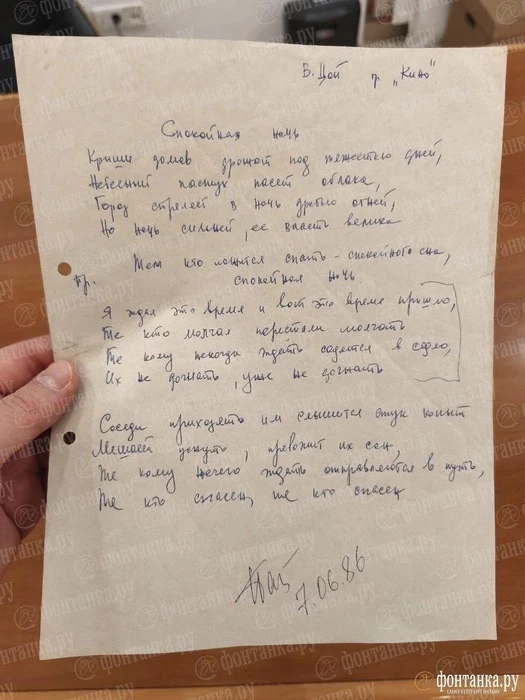 В. Цой гр „Кино"
Спокойная ночь
Крыши домов дрожат под тяжестью дней,
Небесний пастух пасет облака,
Город стреляет в ночь дробью огней,
Но ночь сильней, ее власть велика
Тем кто ложится спать – спокойного сна,
Пр.
спокойная ночь.
Я ждал это время и вот это время пришло,
Те кто молчал перестали молчать
Те кому некогда ждать садятся в седло,
Их не догнать, уже не догнать
Соседи приходять им слышится стук копыт
Мешает уснуть, тревожит их сон,
Те кому нечего ждать отправляются в путь,
Те кто спасен, те кто спасен
Цой
7.06.86
фонтанка.ру
САНКТ-ПЕТЕРБУРГ ОНЛАЙН